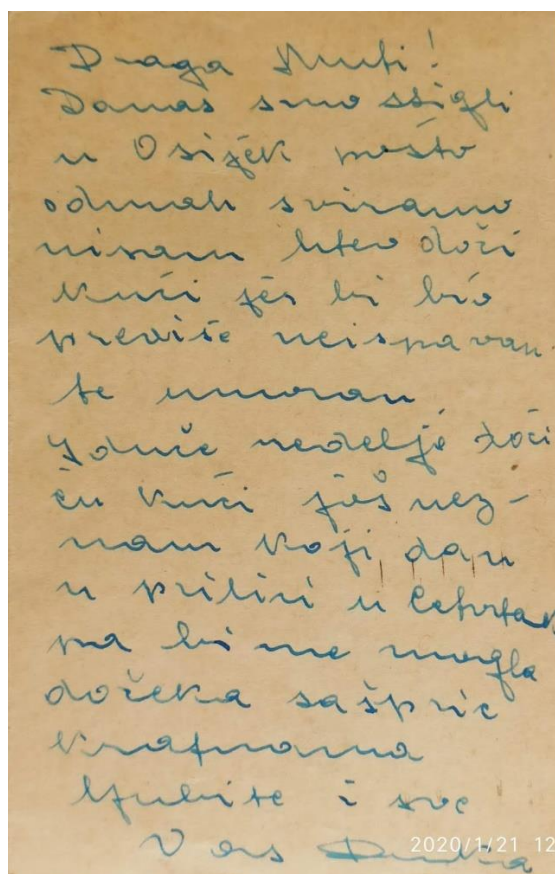 Draga Muti!
Danas smo stigli
u Osijek pošto
odmah sviramo
nisam hteo doći
kući jer bi bio
previše neispavan
te umoran
Iduće nedelje doći
ću kući još nez-
nam koji dan
u prilici u četvrtak
pa bi me mogla
dočeka sa špric
krafnama
ljubi te i sve
Vas
2020/1/21 12